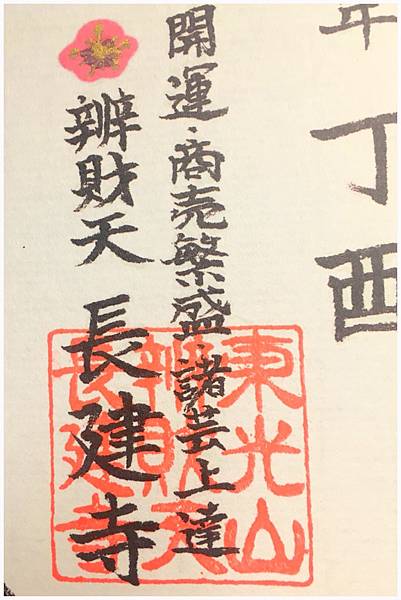 年丁酉
開運・商売繁盛・諸芸上達
辨財天 長建寺
東光山
辨財天
長建寺